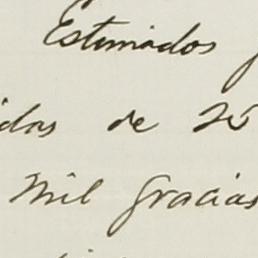 Estimados
idas de
Mil gracias